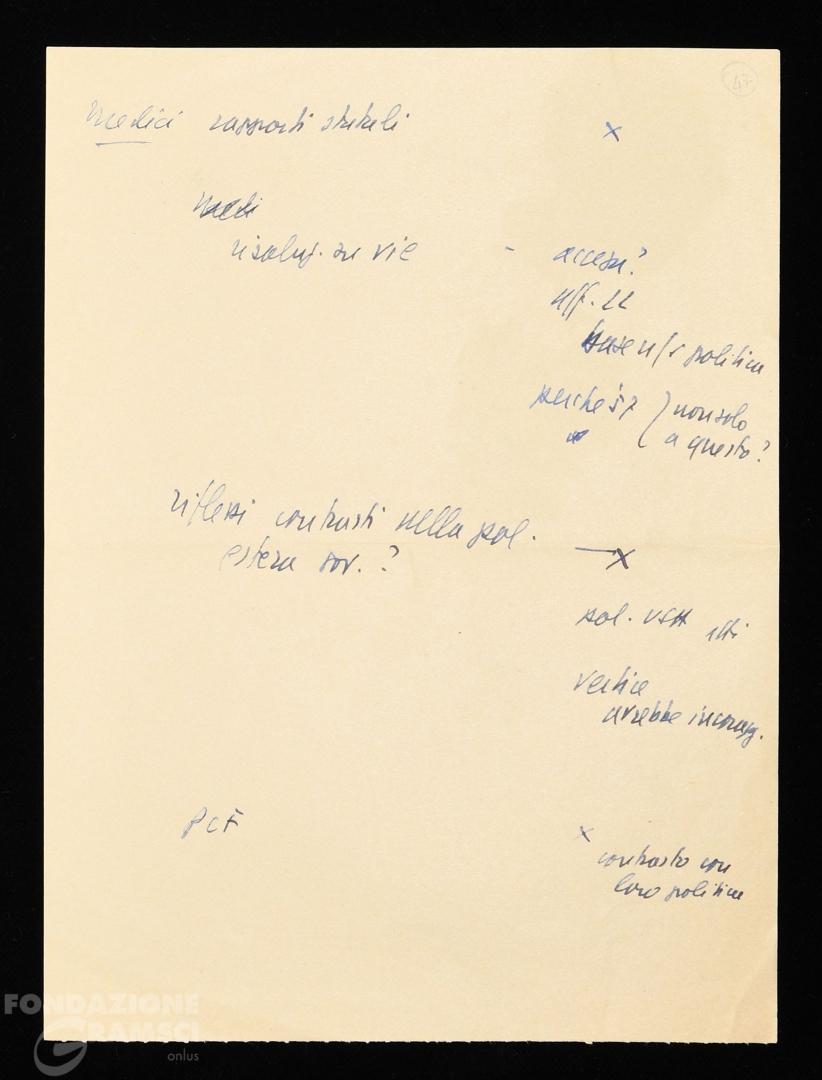 47
Medici rapporti statali
x
Medi
risoluz. su vie
-
accesu?
uff. LL
base n/s politica
perché s7
non solo
a questo?
riflessi contrasti nella pol.
estera sov. ?
x
pol. USA
vertice
avrebbe incorag.
PCF
x
contrasto con
loro politica
FONDAZIONE
GRAMSCI
onlus